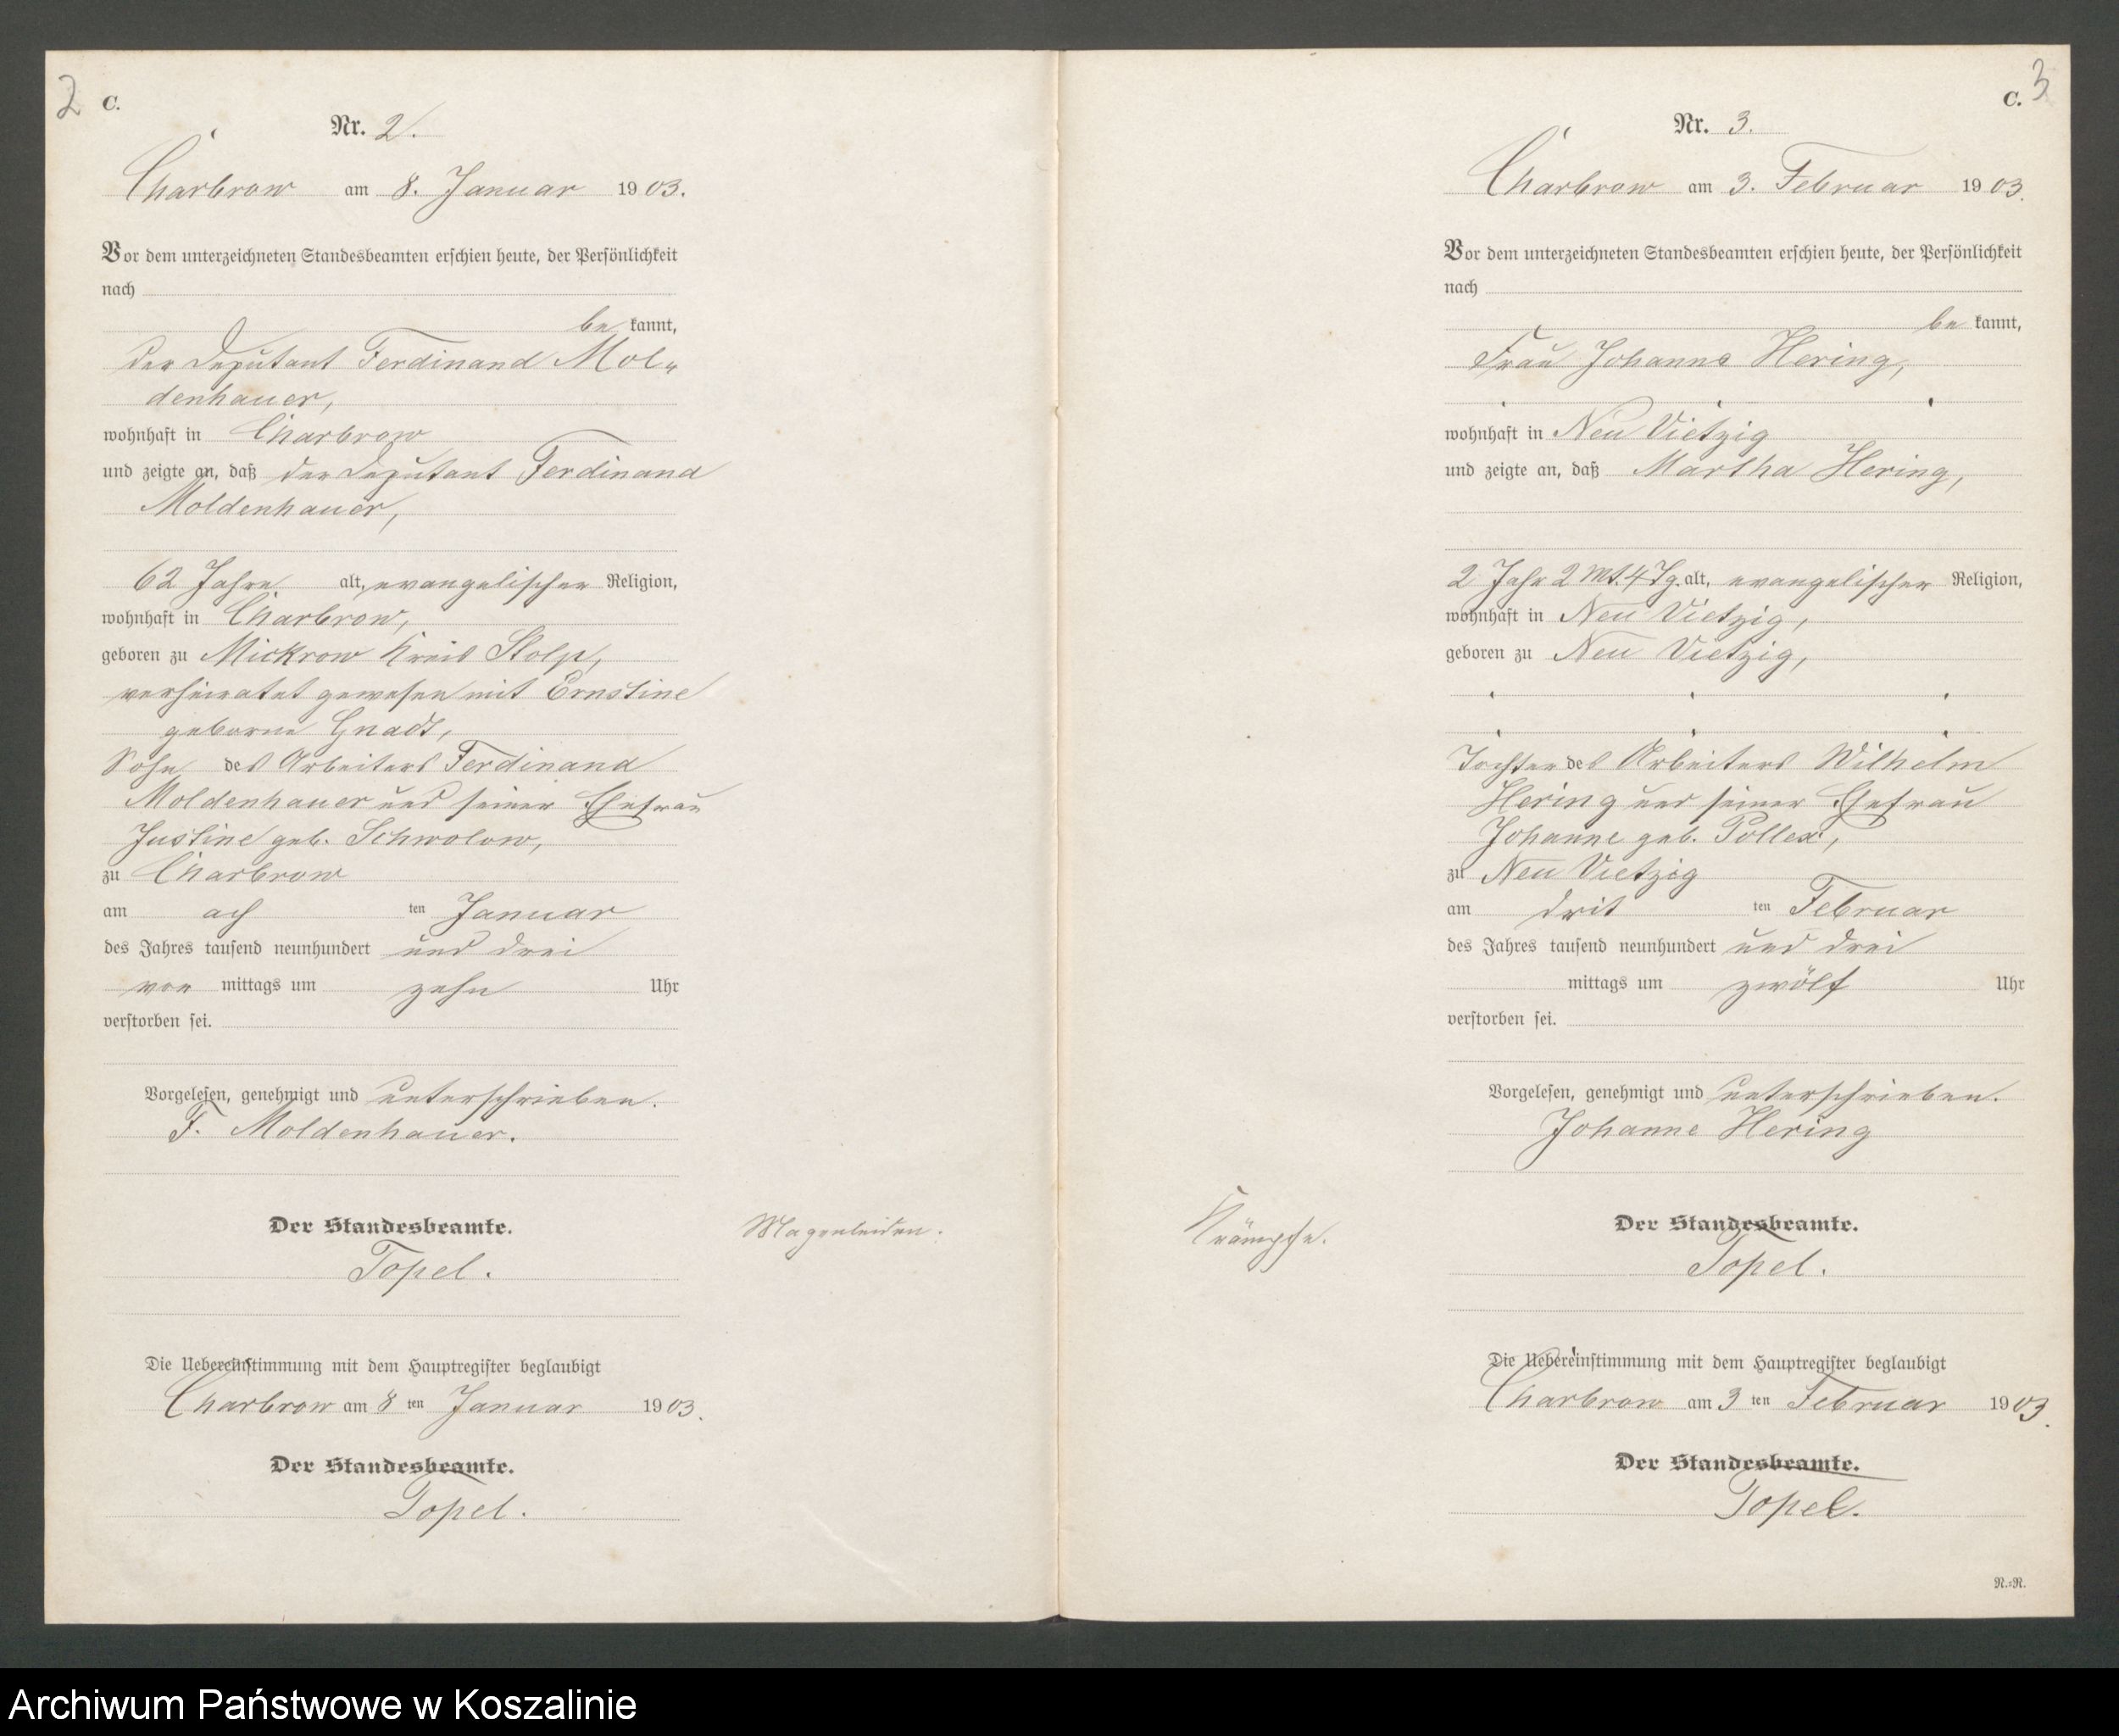 2
C.
Nr. 2.
Charbrow am 8. Januar 1903.
Vor dem unterzeichneten Standesbeamten erschien heute, der Persönlichkeit
nach
be kannt,
der Deputant Ferdinand Mol-
denhauer,
wohnhaft in Charbrow
und zeigte an, daß der Deputant Ferdinand
Moldenhauer,
62 Jahre alt, evangelischer Religion,
wohnhaft in Charbrow,
geboren zu Mickrow Kreis Stolp,
verheiratet gewesen mit Ernstine
geborne Gnadt,
Sohn des Arbeiters Ferdinand
Moldenhauer und seiner Ehefrau
Justine geb. Schwolow,
zu Charbrow
am ach ten Januar
des Jahres tausend neunhundert und drei
vor mittags um zehn Uhr
verstorben sei.
Vorgelesen, genehmigt und unterschrieben.
F. Moldenhauer.
Der Standesbeamte.
Topel.
Magenleiden.
Die Uebereinstimmung mit dem Hauptregister beglaubigt
Charbrow am 8 ten Januar 1903.
Der Standesbeamte.
Topel.
3
C.
Nr. 3.
Charbrow am 3. Februar 1903.
Vor dem unterzeichneten Standesbeamten erschien heute, der Persönlichkeit
nach
be kannt,
Frau Johanne Hering,
wohnhaft in Neu Vietzig
und zeigte an, daß Martha Hering,
2 Jahr 2 Mt. 4 Tg. alt, evangelischer Religion,
wohnhaft in Neu Vietzig,
geboren zu Neu Vietzig,
Tochter des Arbeiters Wilhelm
Hering und seiner Ehefrau
Johanne geb. Pollex,
zu Neu Vietzig
am drit ten Februar
des Jahres tausend neunhundert und drei
mittags um zwölf Uhr
verstorben sei.
Vorgelesen, genehmigt und unterschrieben.
Johanne Hering
Krämpfe.
Der Standesbeamte.
Topel.
Die Uebereinstimmung mit dem Hauptregister beglaubigt
Charbrow am 3 ten Februar 1903.
Der Standesbeamte.
Topel.
R.=R.
Archiwum Państwowe w Koszalinie